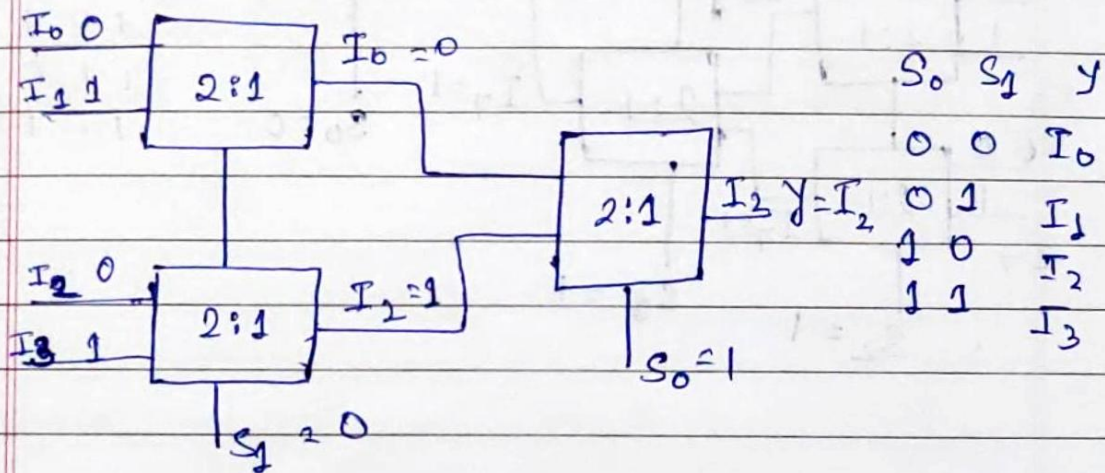 I0 0
I1 1
2:1
I0 = 0
I2 0
I3 1
2:1
I2 = 1
S1 = 0
2:1
I2 Y = I2
S0 = 1
S0 S1 Y
0 0 I0
0 1 I1
1 0 I2
1 1 I3